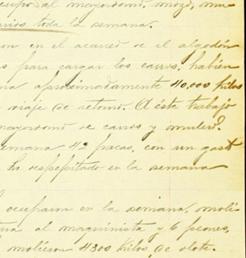 al mayordomo, mozo,
toda la semana.
en el acarreo de el algodón
para cargar los carros, habien
aproximadamente 40,000 kilos
viaje de retorno. A éste trabajo
mayordomo de carros y mulero?
semana 42 pacas, con un gast
ha despepitado en la semana
ocuparon en la semana, moli
al maquinista y 6 peones,
molieron 4300 kilos, de olote.